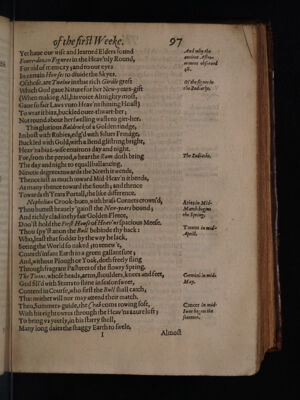 of the first Weeke. 97
Yet have our wise and learned Elders found
Foure-dozen Figures in the Heav'nly Round,
For aid of memory; and to our eyes
In certain Houses to divide the Skyes.
Of those, are Twelve in that rich Girdle greft
Which God gave Nature for her New-years-gift
(When making All, his voice Almighty most,
Gave so fair Laws unto Heav'ns shining Hoast)
To wear it bias, buckled over-thwart her;
Not round about her swelling waste to girt-her.
This glorious Baldrick of a Golden tindge,
Imbost with Rubies, edg'd with Silver Fringe,
Buckled with Gold, with a Bend glistring bright,
Heav'n bias-wise environs day and night.
For, from the period, where the Ram doth bring
The day and night to equall ballancing,
Ninetie degrees towards the North it wends,
Thence just as much toward Mid-Heav'n it bends,
As many thence toward the South; and thence
Towards th'Years Portall, the like difference.
Nephelian Crook-horn, with brass Cornets crown'd,
Thou buttest bravely 'gainst the New-years bound;
And richly clad in thy fair Golden Fleece,
Doo'st hold the First House of Heav'ns spacious Meese.
Thou spy'st anon the Bull behinde thy back:
Who, least that fodder by the way he lack,
Seeing the World so naked; to renew't,
Coats th'infant Earth in a green gallant sute;
And, without Plough or Yoak, doth freely fling
Through fragrant Pastures of the flowry Spring.
The Twins, whose heads, arms, shoulders, knees and feet,
God fill'd with Starrs to shine in season sweet,
Contend in Course, who first the Bull shall catch,
That neither will nor may attend their match.
Then, Summers-guide, the Crab coms rowing soft,
With his eight owres through the Heav'ns azure loft;
To bring us yeerly, in his starry shell,
Many long daies the shaggy Earth to swele,
I Almost
And why the
ancient Astro-
nomers observed
48.
Of the signes in
the Zodiack.
The Zodiacke.
Aries in Mid-
March begins
the Spring.
Taurus in mid-
Aprill.
Gemini in mid-
May.
Cancer in mid-
Iune begins the
Summer.